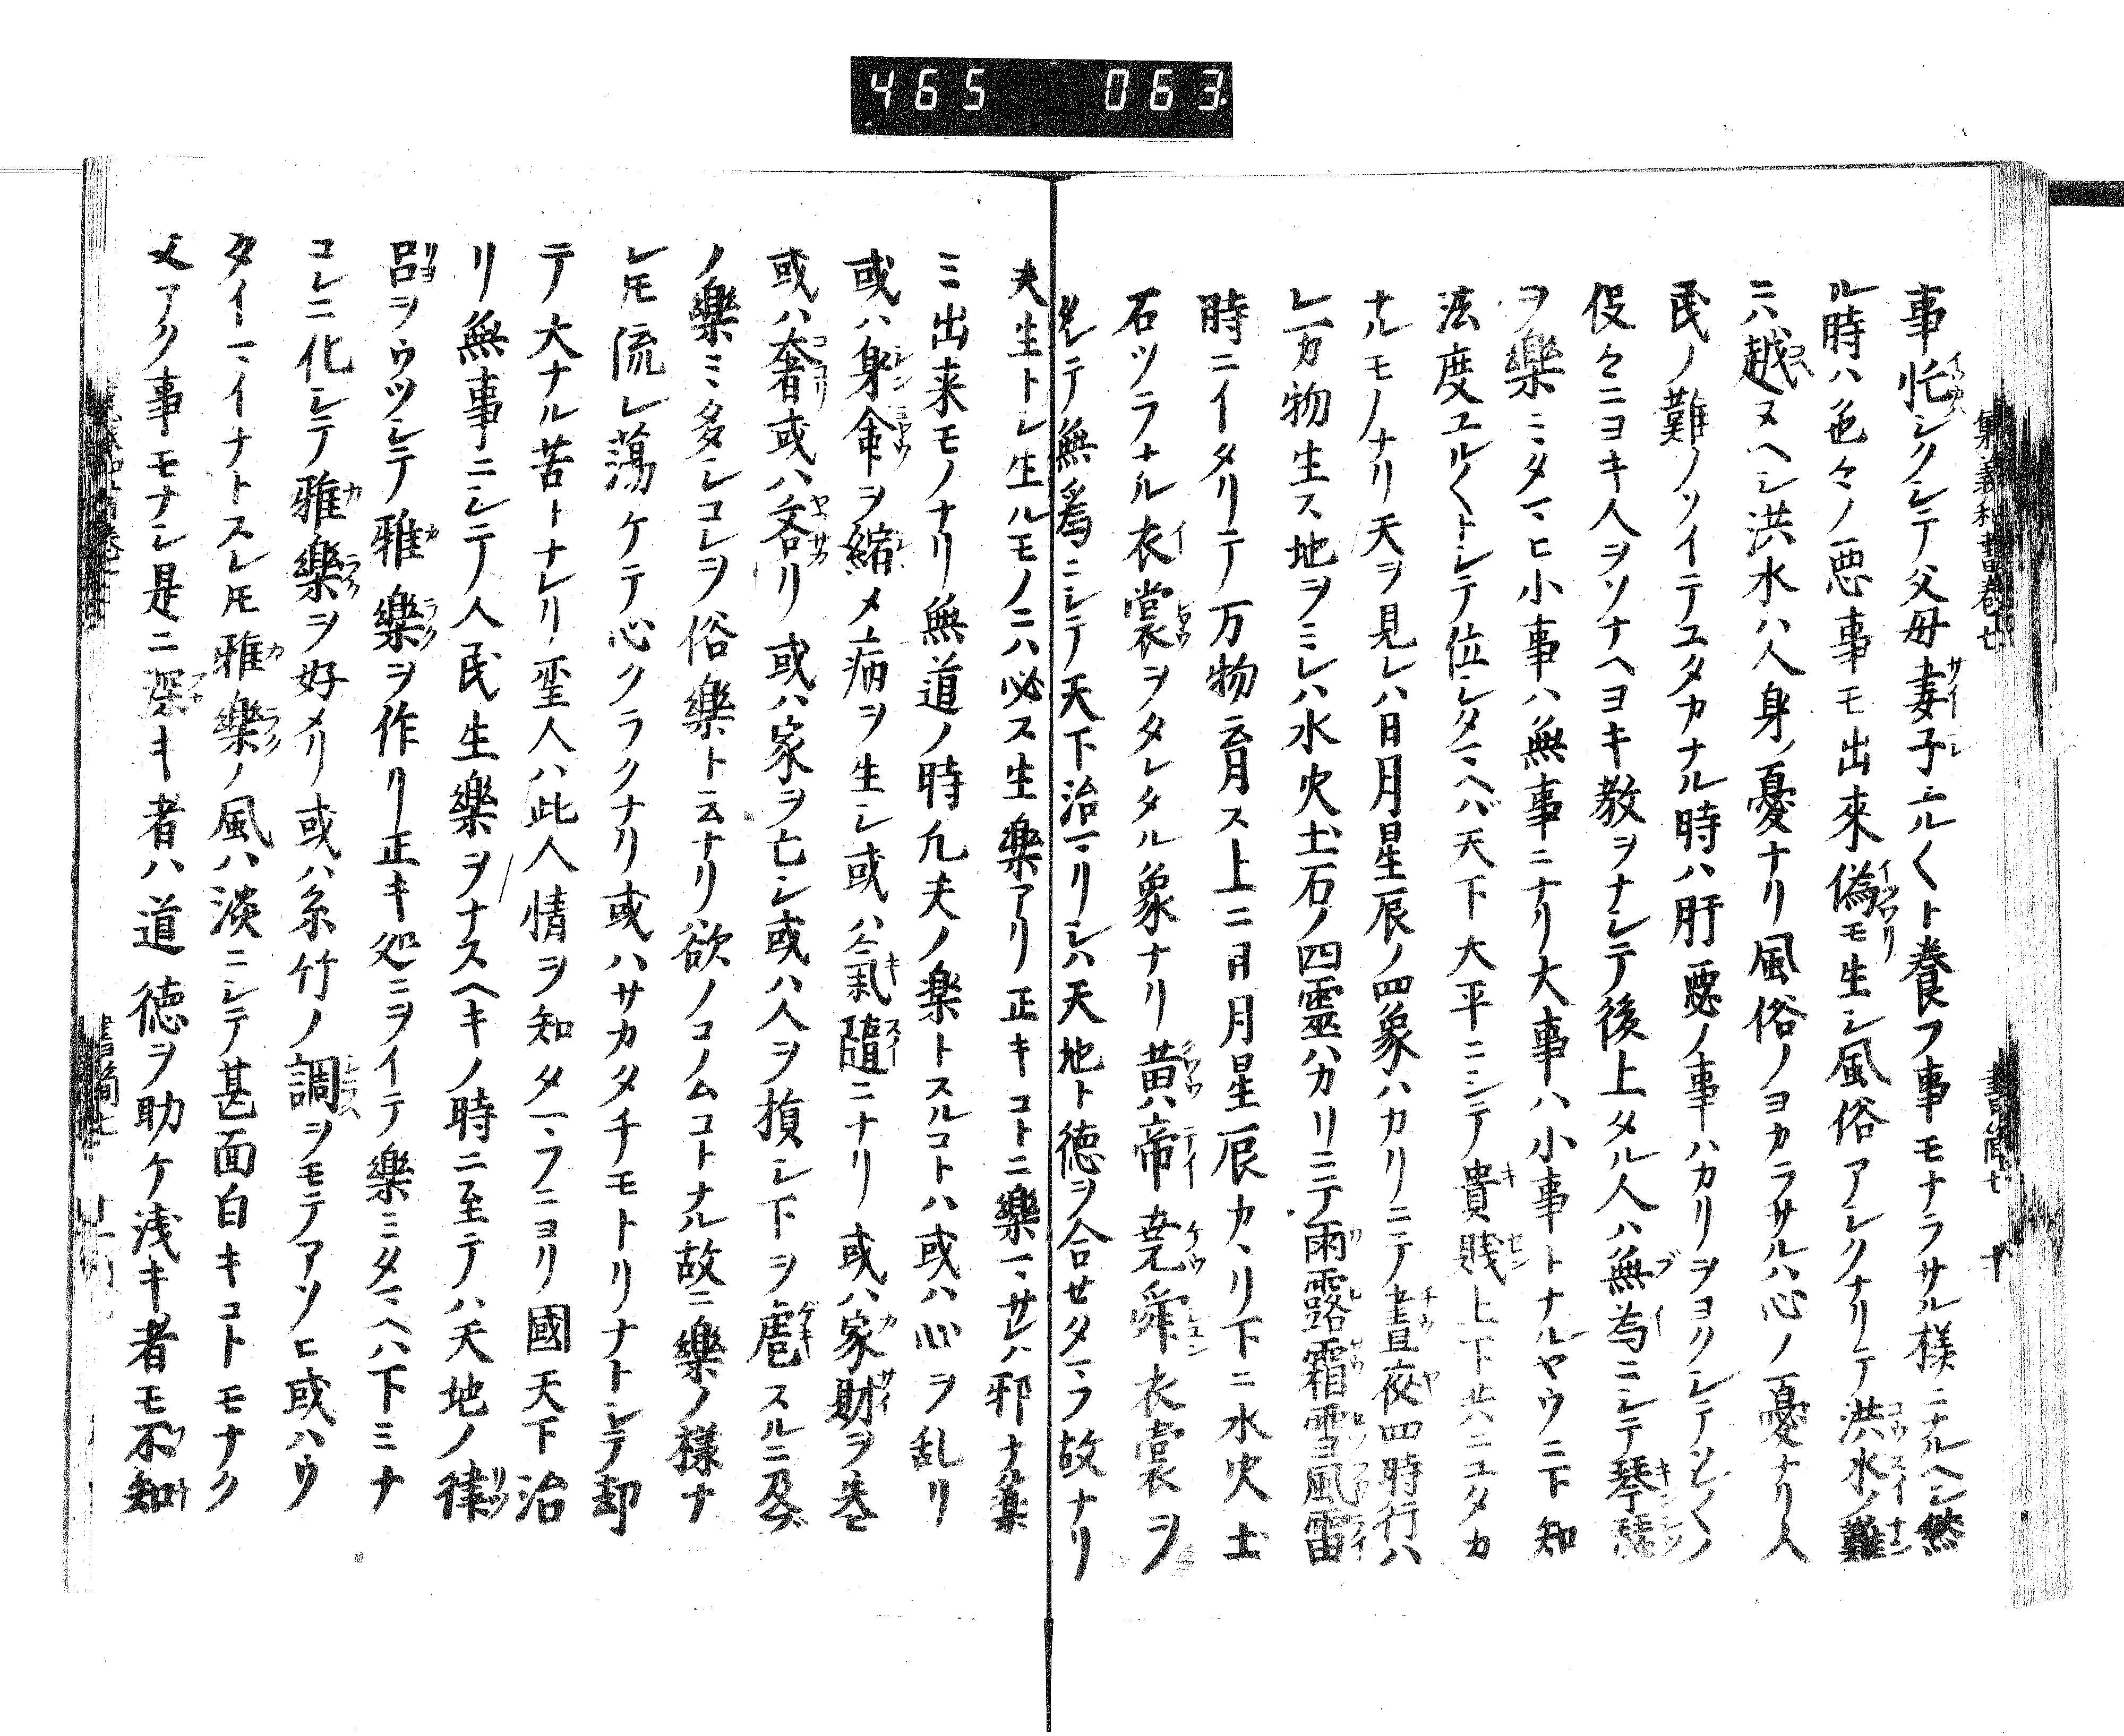 465 063
集義和書卷七 書簡七 十
事忙シクシテ父母妻子ユルくト養フ事モナラサル様ニナルヘシ然
ル時ハ色々ノ悪事モ出來偽モ生シ風俗アシクナリテ洪水ノ難
ニハ越ヌヘシ洪水ハ人身ノ憂ナリ風俗ノヨカラサルハ心ノ憂ナリ人
民ノ難ノソイテユタカナル時ハ肝要ノ事ハカリヲヨクシテ
役々ニヨキ人ヲソナヘヨキ教ヲナシテ後上タル人ハ無為ニシテ琴瑟
ヲ樂ミタマヒ小事ハ無事ニナリ大事ハ小事トナルヤウニ下知
法度ユルくトシテ位シタマヘバ天下大平ニシテ貴賤上下共ニユタカ
ナルモノナリ天ヲ見レハ日月星辰ノ四象ハカリニテ晝夜四時行ハ
レ万物生ス地ヲミレハ水火土石ノ四靈ハカリニテ雨露霜雪風雷
時ニイタリテ万物育ス上ニ日月星辰カヽリ下ニ水火土
石ツラナル衣裳ヲタレタル象ナリ黄帝堯舜衣裳ヲ
タレテ無爲ニシテ天下治マリシハ天地ト徳ヲ合セタマフ故ナリ
夫生トシ生ルモノニハ必ス生樂アリ正キコトニ樂マサレハ邪ナ樂
ミ出来モノナリ無道ノ時凢夫ノ楽トスルコトハ或ハ心ヲ乱リ
或ハ身命ヲ縮メ病ヲ生シ或ハ氣隨ニナリ或ハ家財ヲ失
或ハ奢或ハ吝リ或ハ家ヲ亡シ或ハ人ヲ損シ下ヲ虐スルニ及ブ
ノ樂ミ多シコレヲ俗樂ト云ナリ欲ノコノムコトナル故ニ樂ノ様ナ
レ𪜈流レ蕩ケテ心クラクナリ或ハサカタチモトリナトシテ却
テ大ナル苦トナレリ聖人ハ此人情ヲ知タマフニヨリ國天下治
リ無事ニシテ人民生樂ヲナスヘキノ時ニ至テハ天地ノ律
呂ヲウツシテ雅樂ヲ作リ正キ処ニヲイテ樂ミタマヘハ下ミナ
コレニ化シテ雅樂ヲ好メリ或ハ糸竹ノ調ヲモテアソヒ或ハウ
タイマイナトスレ𪜈雅樂ノ風ハ淡ニシテ甚面白キコトモナク
又アク事モナシ是ニ深キ者ハ道徳ヲ助ケ浅キ者モ不知
書簡七